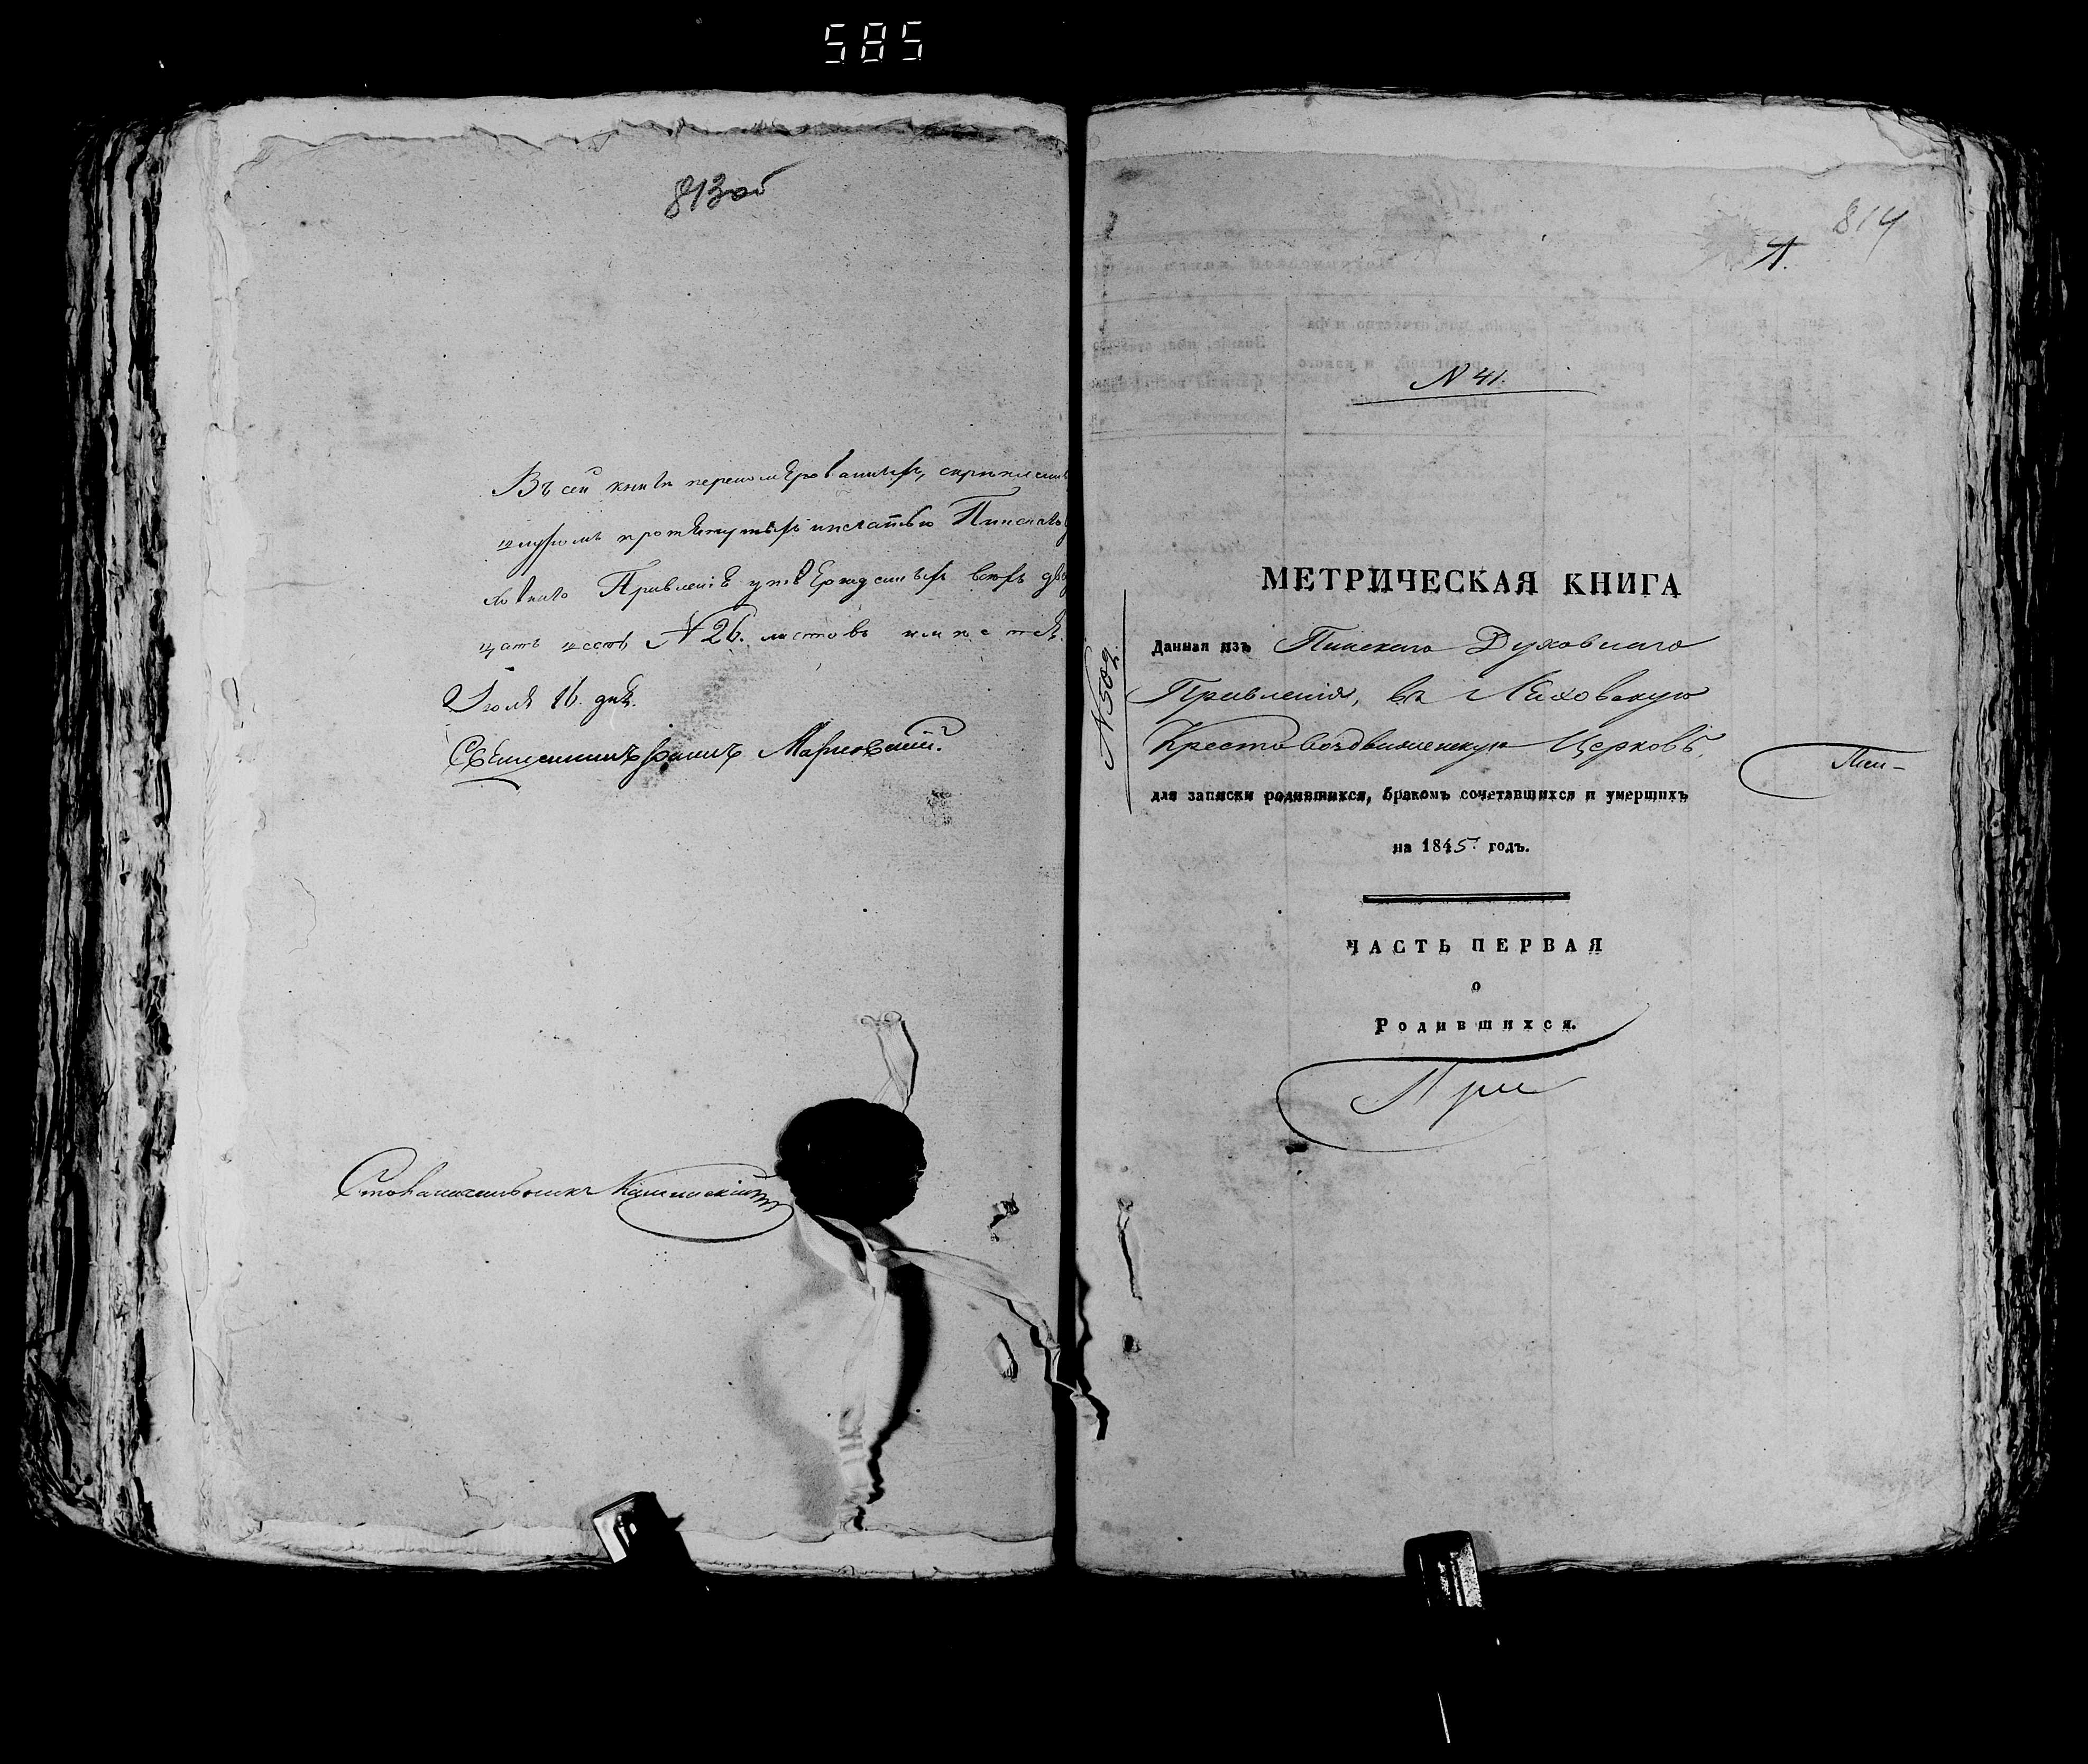 585
813об
Въ сей книги перенумерованныхъ, скрепленн
шнуромъ протянутыхъ и печатью Пинскаго
ховнаго Правленія утвержденныхъ всехъ два
цать шесть N 26. листовъ
Іюля 16. дня.
Священникъ
Столоначальникъ
814
1.
N 41.
МЕТРИЧЕСКАЯ КНИГА
Данная изъ Пинскаго Духовнаго
Правленія, въ Ляховскую
Крестовоздвиженскую Церковь,
Пин-
N 502.
для записки родившихся, бракомъ сочетавшихся и умершихъ
на 1845. годъ.
ЧАСТЬ ПЕРВАЯ
о
Родившихся.
При